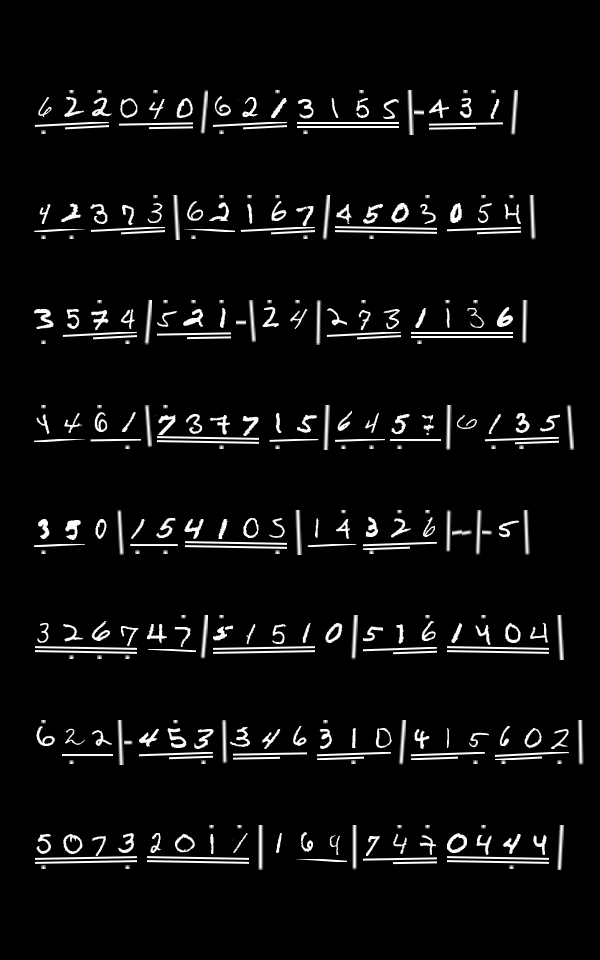 622040|6213155|-431|
42373|62167|4503054|
3574|521-|24|2731136|
4461|737715|6457|6135|
350|154105|14326|--|-5|
326747|51510|5161404|
622|-453|346310|415602|
50732011|169|7470444|